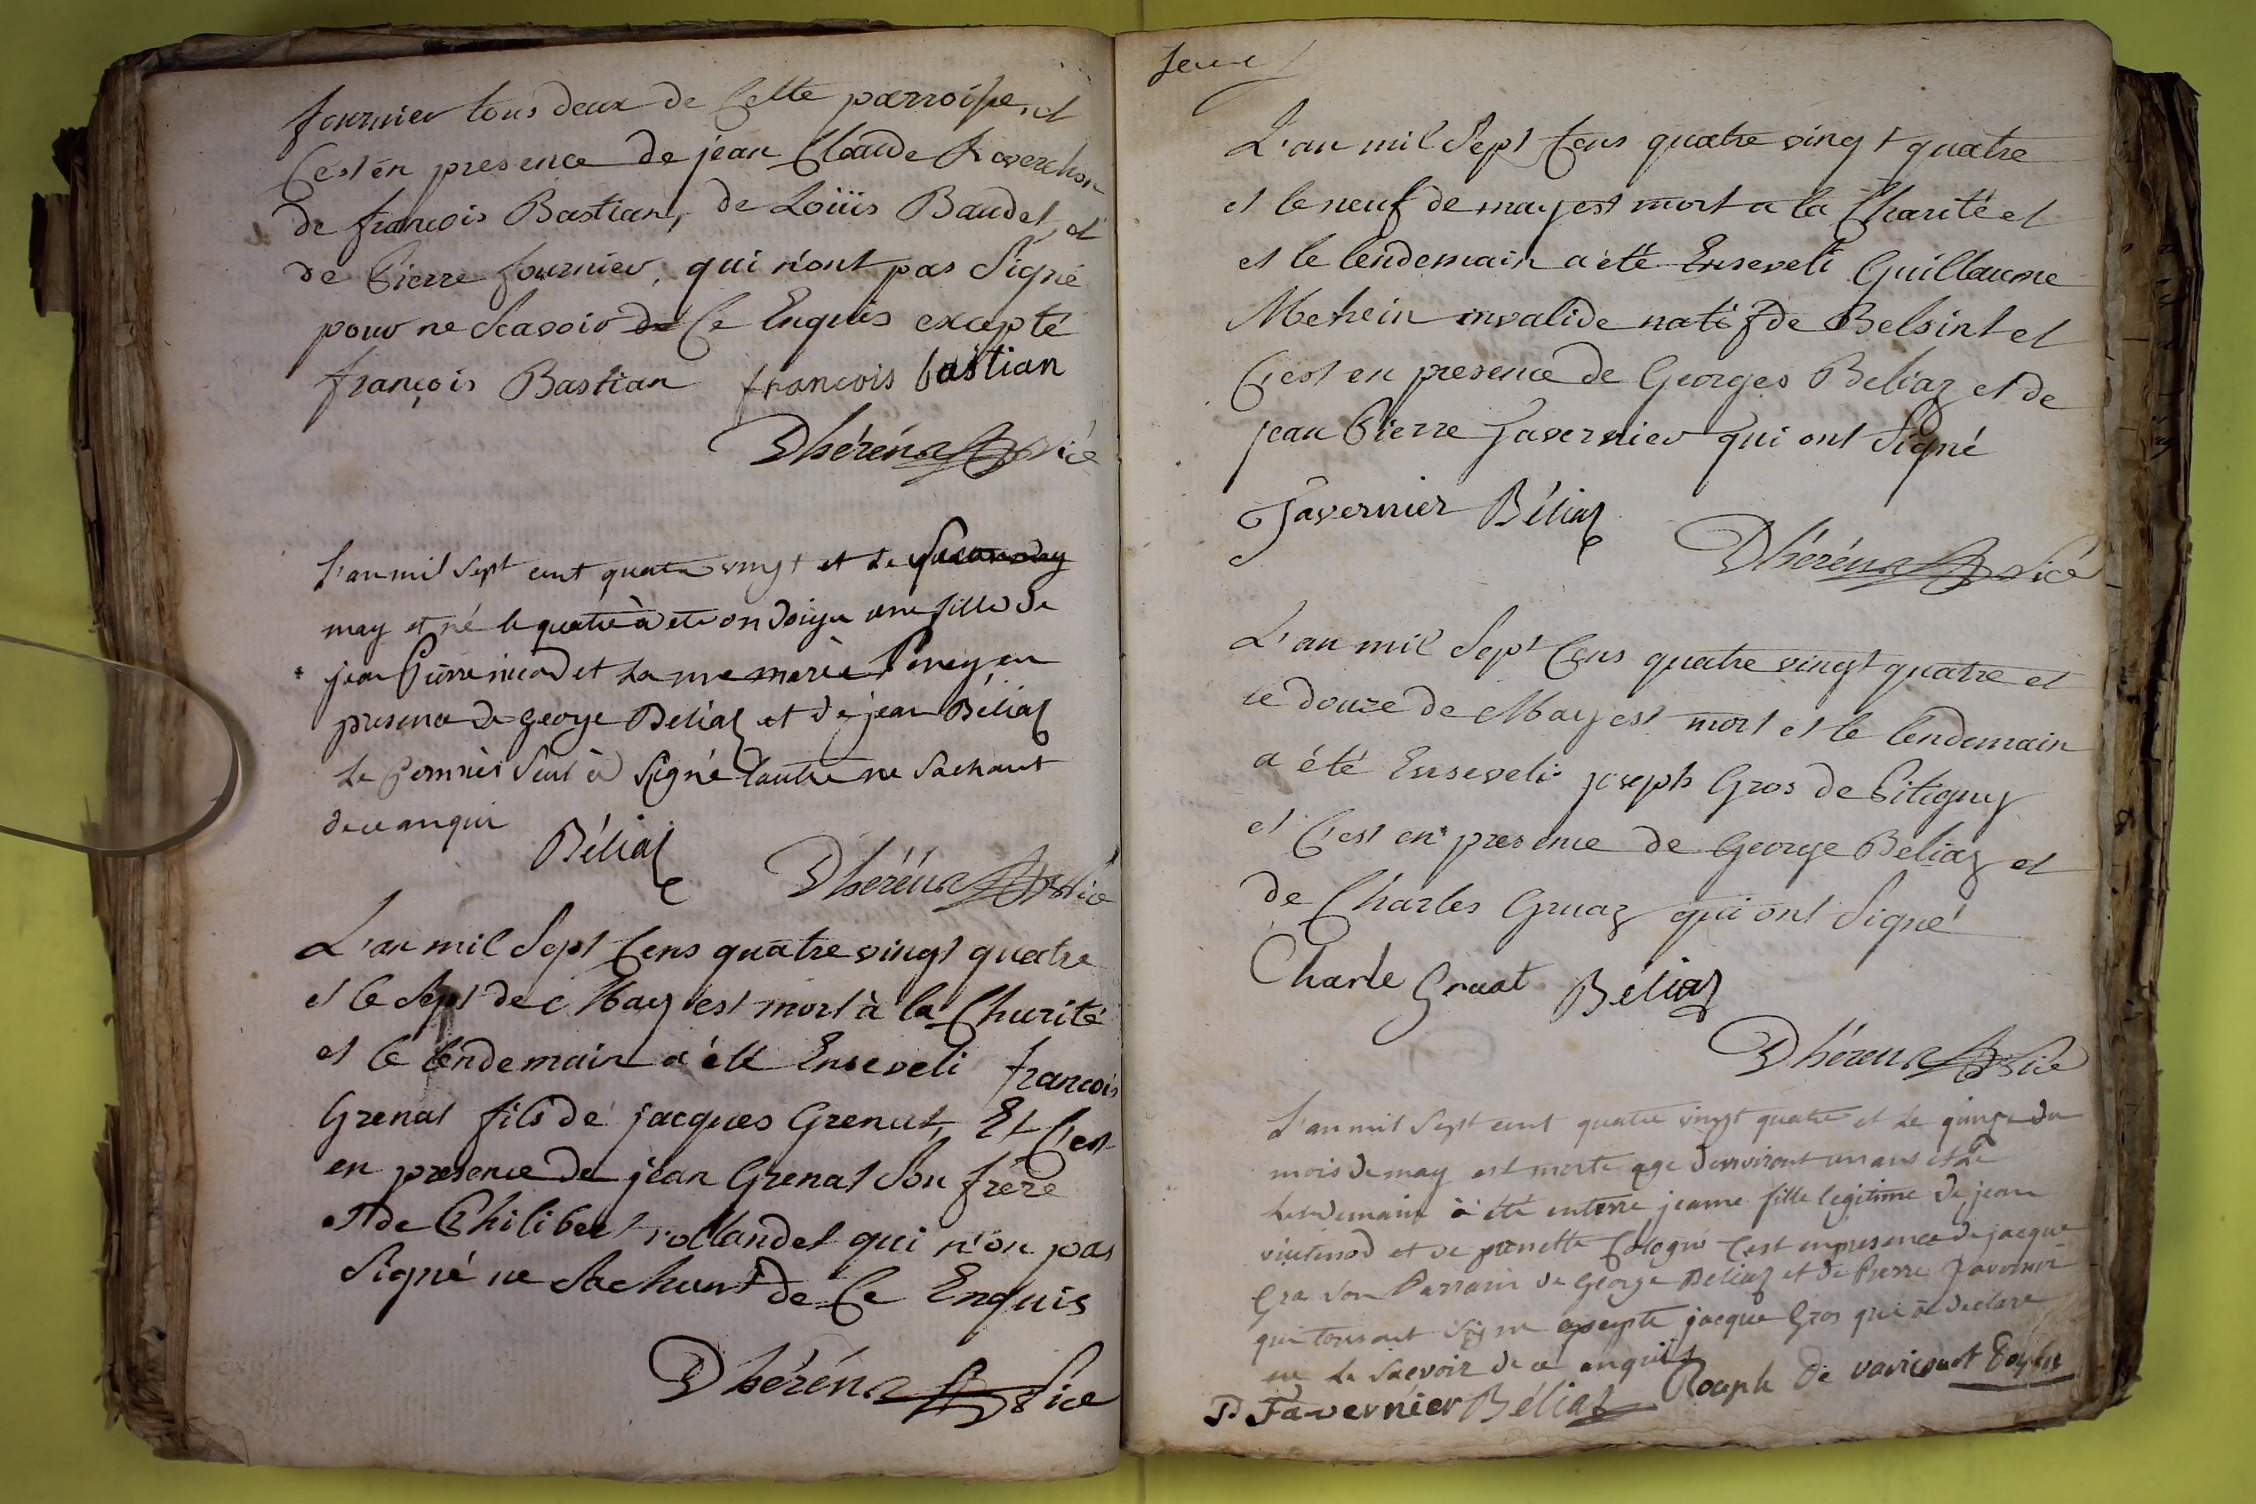 fournier tous deux de Cette parroisse, et
C'est en presence de jean Claude Raverchon
de francois Bastian, de Loüis Baudet, et
de Pierre fournier, qui n'ont pas Signé
pour ne Scavoir de Ce Enquis excepté
françois Bastian francois bastian
Dhéréns Vice
L'an mil Sept cent quatre vingt et le
may et né le quatre à ete ondoiyée une fille de
jean Pierre nicod et La mre marie Perrey en
presence de george Béliaz et de jean Béliaz
Le premier Seul à Signé l'autre ne Sachant
de ce anquis
Béliaz
Dhéréns Vice
L'an mil Sept Cens quatre vingt quatre
et le Sept de May est mort à la Charité
et le lendemain a été Enseveli francois
Grenat fils de jacques Grenat, Et C'est
en presence de jean Grenat Son frère
et de Philibert rollandet qui n'on pas
Signé ne Sachant de Ce Enquis
Dhéréns Vice
L'an mil Sept Cens quatre vingt quatre
et le neuf de may est mort a la Charité et
et le lendemain a été Enseveli Guillaume
Mehein invalide natif de Belsint et
C'est en presence de Georges Beliaz et de
jean Pierre Tavernier qui ont Signé
Tavernier Béliaz
Dhéréns Vice
L'an mil Sept Cens quatre vingt quatre et
le douze de May est mort et le lendemain
a été Enseveli joseph Gros de Pitigny
et C'est en presence de George Beliaz et
de Charles Gruaz qui ont Signé
Charle Gruat Béliaz
Dhéréns Vice
L'an mil Sept cent quatre vingt quatre et le quinze du
mois de may est morte age d'environt un ans et Le
Lendemain à été enterre jeanne fille legitime de jean
et de pernette C'est en presence de jacque
Gra Son Parrain de George Beliaz et de Pierre Tavernier
qui tous ont Signe excepte jacque Gros qui à declare
ne Le Scavoir de ce anquis
P Tavernier Béliaz Rouph De varicourt